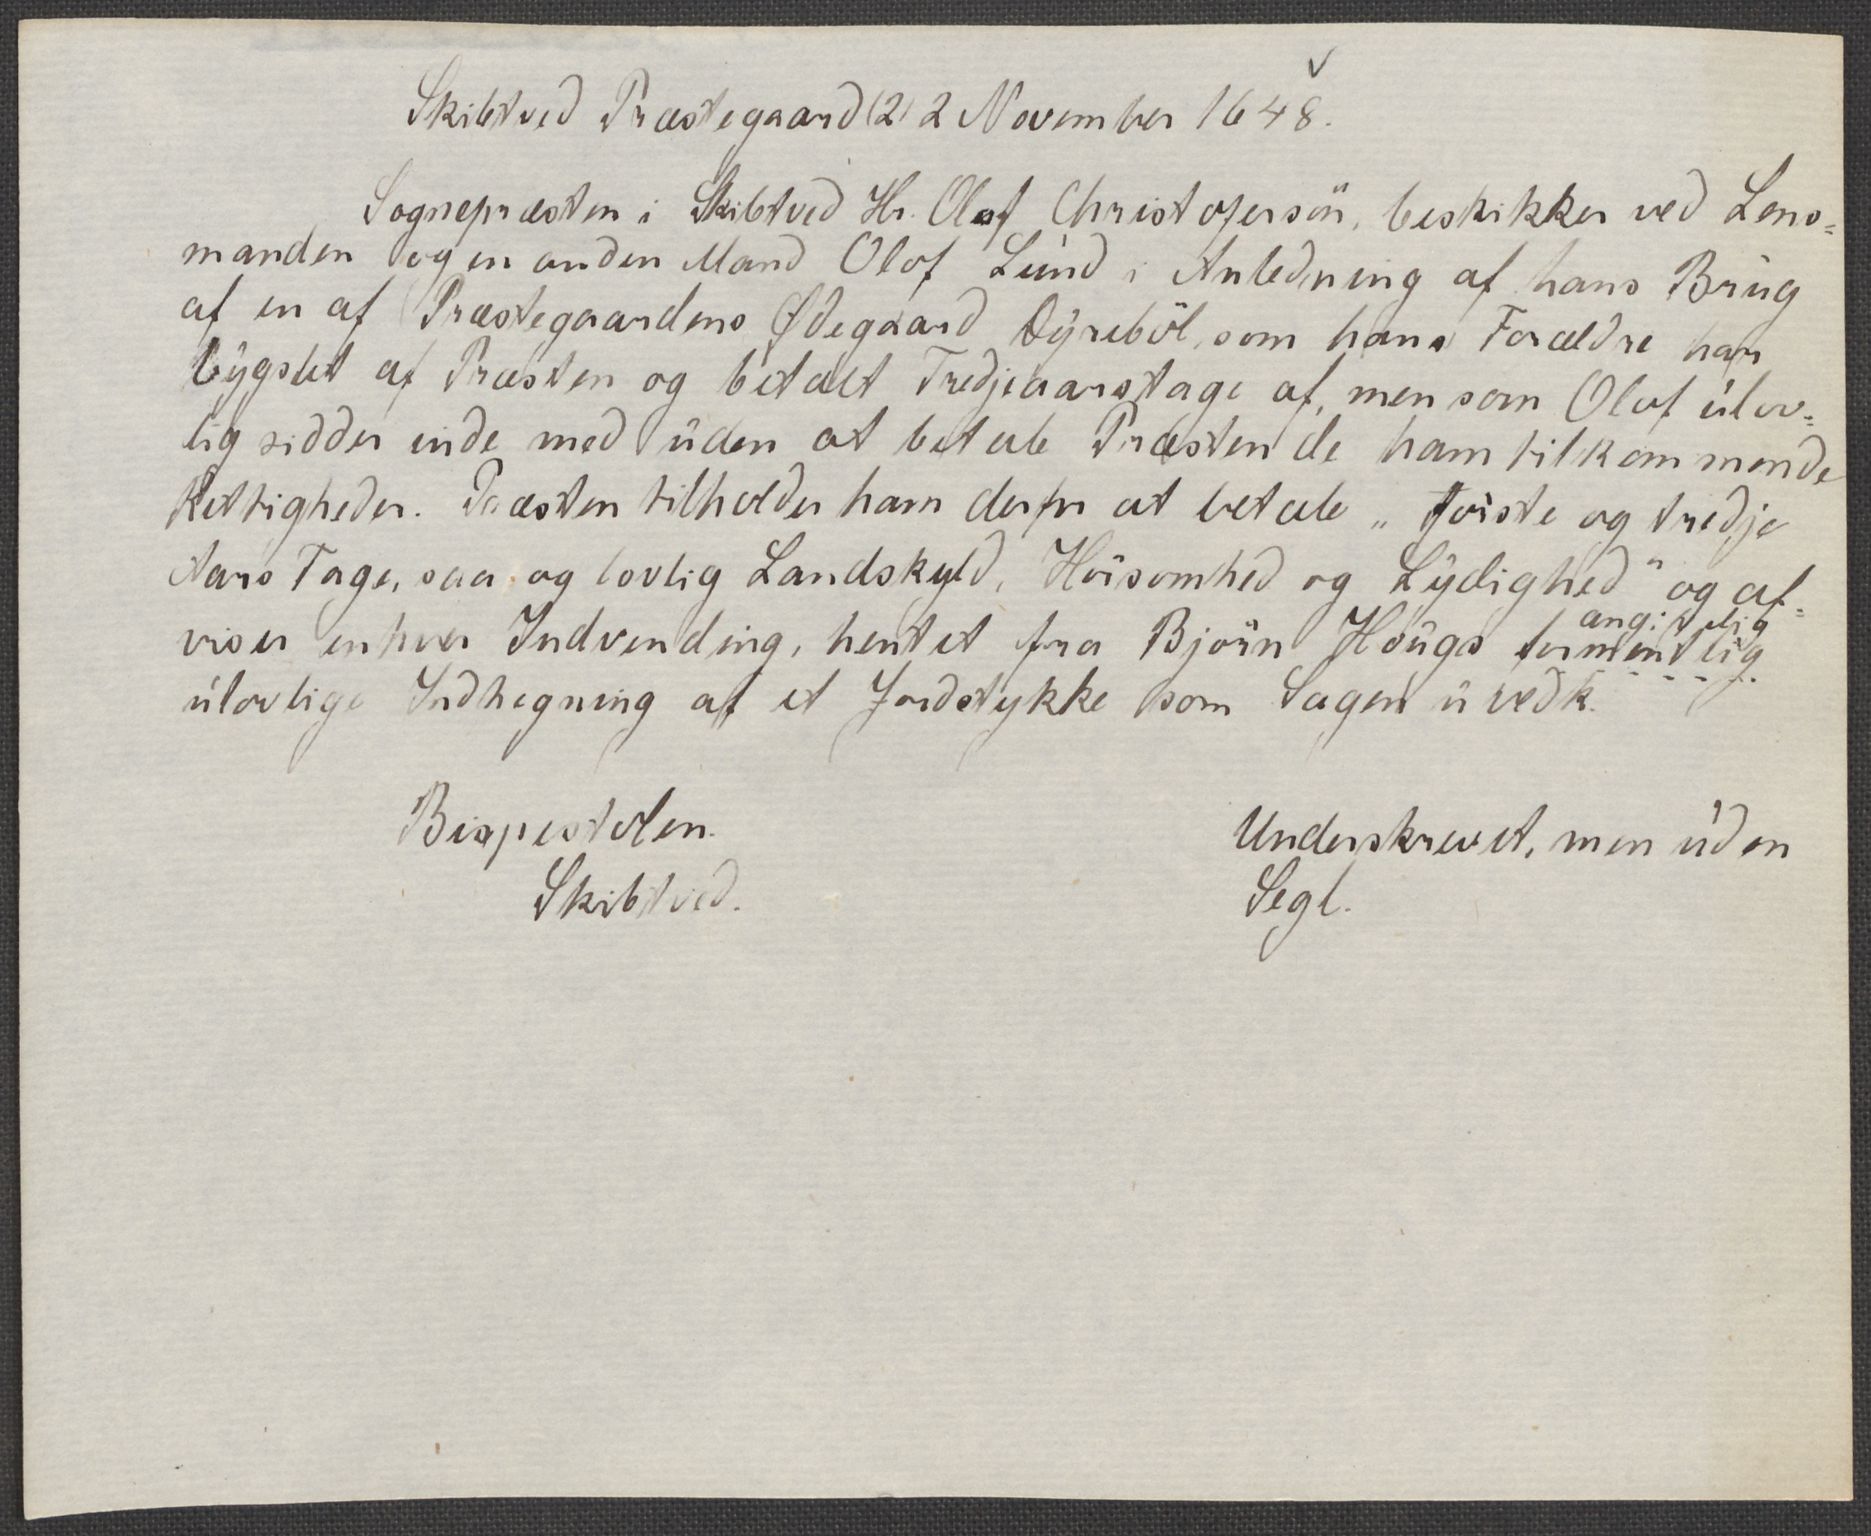 Skibtved Præstegaard (2) 2 November 1648.
Sognepræsten i Skibtved Hr. Olaf Christofersön, beskikker ved Lens-
manden og en anden Mand Olof Lund i Anledning af hans Brug
af en af Præstegaardens Ødegaard Dyreböl, som hans Forældre har
bygslet af Præsten og betalt Tredjeaarstage af, men som Olof ulov-
lig sidder inde med uden at betale Præsten de ham tilkommende
Rettigheder. Præsten tilholder ham derfor at betale „förste og tredje
Aars Tage, saa og lovlig Landskyld, Hörsomhed og Lydighed" og af-
viser enhver Indvending, hentet fra Björn Hougs formentlig
angivelig
ulovlige Indhegning af et Jordstykke som Sagen u vedk.
Bispestolen.
Skibtved.
Underskrevet, men uden
Segl.